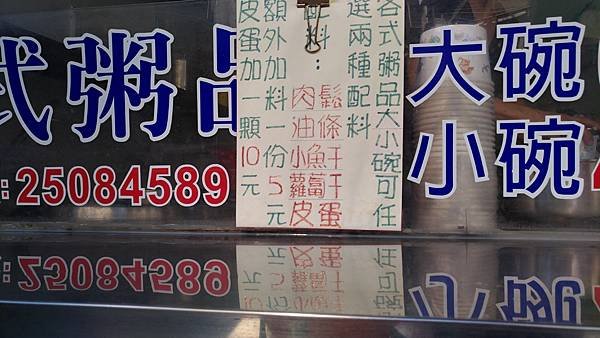 式粥品
:25084589
各式粥品大小碗可任
選兩種配料
配料:
肉鬆
油條
小魚干
蘿蔔干
皮蛋
額外加料一份5元
皮蛋加一顆10元
大碗
小碗